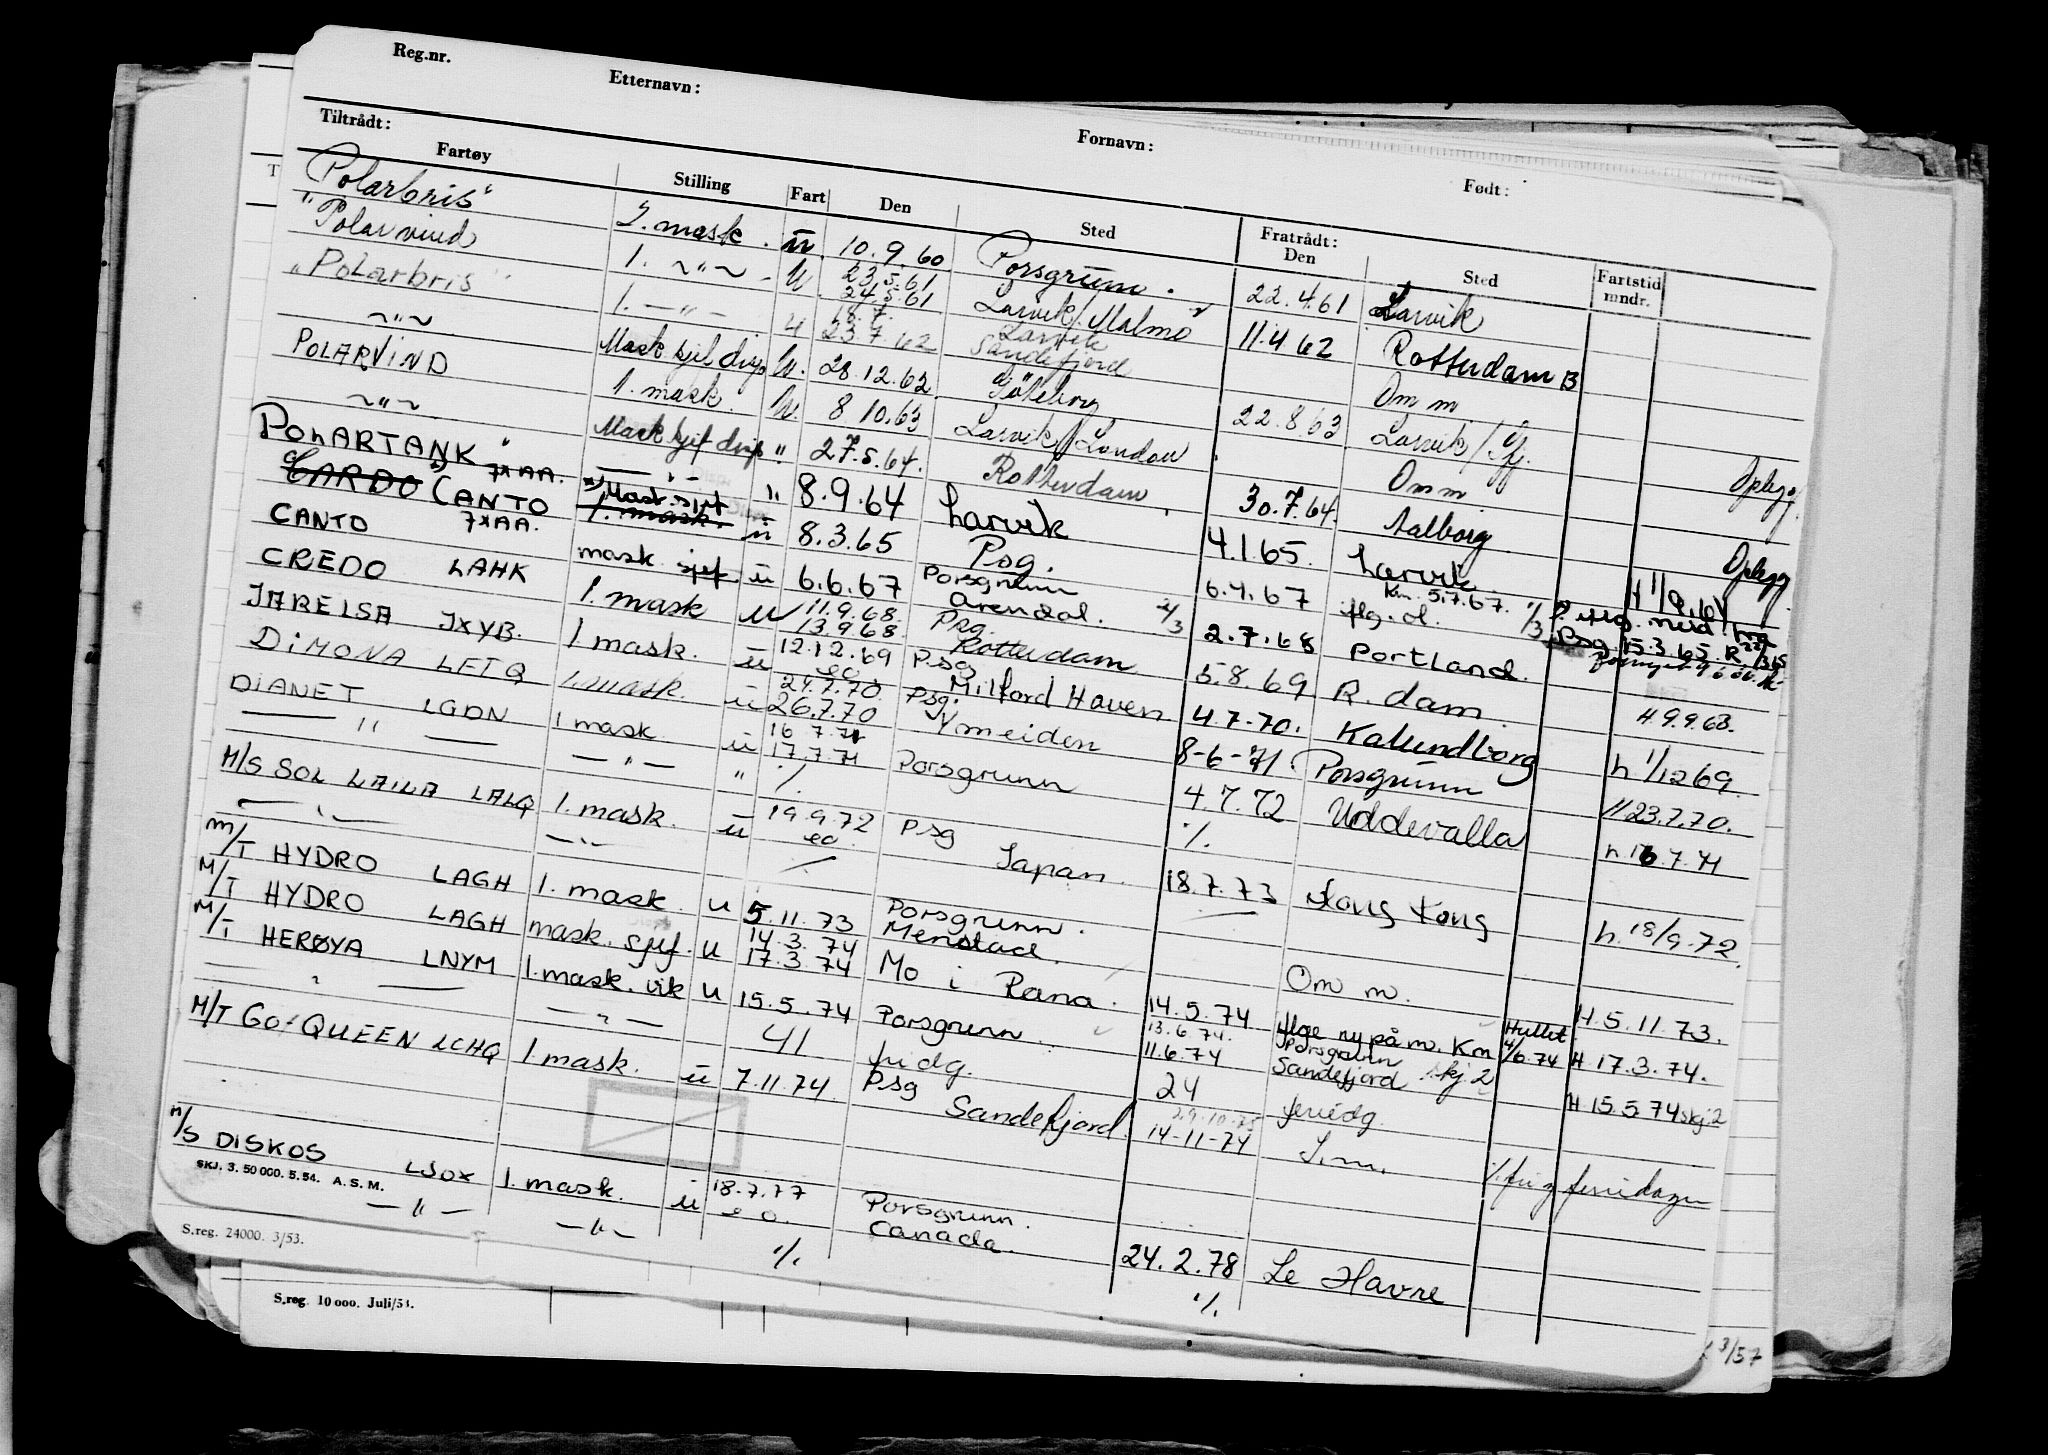 Reg.nr. Etternavn: Fornavn: Født:
Tiltrådt: Fratrådt:
Fartøy Stilling Fart Den Sted Den Sted Fartstid mndr.
"Polarbris" 2. mask. u. 10.9.60 Porsgrunn. 22.4.61 Larvik
"Polarvind 1. ~"~ u. 23.5.61 24.5.61 Larvik/Malmö 11.4.62 Rotterdam B
"Polarbris" 1. —"— u 18.7. 23.7.62 Larvik Sandefjord Om m
~"~ Mask.kjef disp u. 28.12.62 Göteborg 22.8.63 Larvik/
POLARVIND 1. mask. u. 8 10.63 Larvik/London Om m Oplegg
~"~ Mask kjef disp " 27.5.64. Rotterdam 30.7.64. Aalborg
POLARTANK " " 8.9.64 Larvik 4.1.65. Larvik Oplegg
CARDO CANTO JXAA. Mask.sjef 1. mask. u 8.3.65 Psg. 6.4.67 H 1/9.64
CANTO JXAA. mask. sjef. u 6.6.67 Porsgrunn Arendal. 2/3 2.7.68 Portland. Km 5.7.67. 1/3 Psg. 15.3.65
CREDO LAHK 1. mask u 11.9.68. 13.9.68 Psg. Rotterdam 5.8.69 R.dam. H 9.9.68.
JARELSA JXYB. 1 mask. u 12.12.69 eo Psg Milford Haven 4.7.70. Kalundborg h 1/12 69.
DIMONA LFTQ 1. mask. u 24.7.70. 26.7.70 Psg. Ymeiden 8-6-71. Porsgrunn 23.7.70.
DIANET LGDN 1 mask u 16 7.71 17.7.71 Porsgrunn 4.7.72 Uddevalla h 16.7.71
— " — — " — " ./. ./.
M/S SOL LAILA LALQ 1. mask. u 19.9.72 eo Psg Japan. 18.7.73 Hong Kong h. 18/9.72.
— " — — " — /
M/T HYDRO LAGH 1. mask. u 5.11.73 Porsgrunn. Menstad. Om m. H.5.11.73.
M/T HYDRO LAGH mask. sjef. u 14.3.74 17.3.74 Mo i Rana. 14.5.74 flge ny på m. Km Hullet 4/6.74 H 17.3.74.
M/T HERØYA LNYM 1. mask. vik u 15.5.74 Porsgrunn 13.6.74. 11.6.74 Porsgrunn Sandefjord skj.2 H 15.5.74 skj.2
— " — — " — 41 fridg. 24 feriedg.
M/T GO-QUEEN LCHQ 1. mask. u 7.11.74 Psg Sandefjord. 29.10.75 14-11-74 ./. fri og feriedager
M/S DISKOS LJOX 1. mask. u 18.7.77 eo. Porsgrunn. Canada. 24.2.78 Le Havre
SKJ. 3. 50 000. 5.54. A. S. M.
— " — — " — ./. ./.
S.reg. 24000. 3/53.
S.reg. 10 000. Juli/53.
3/57